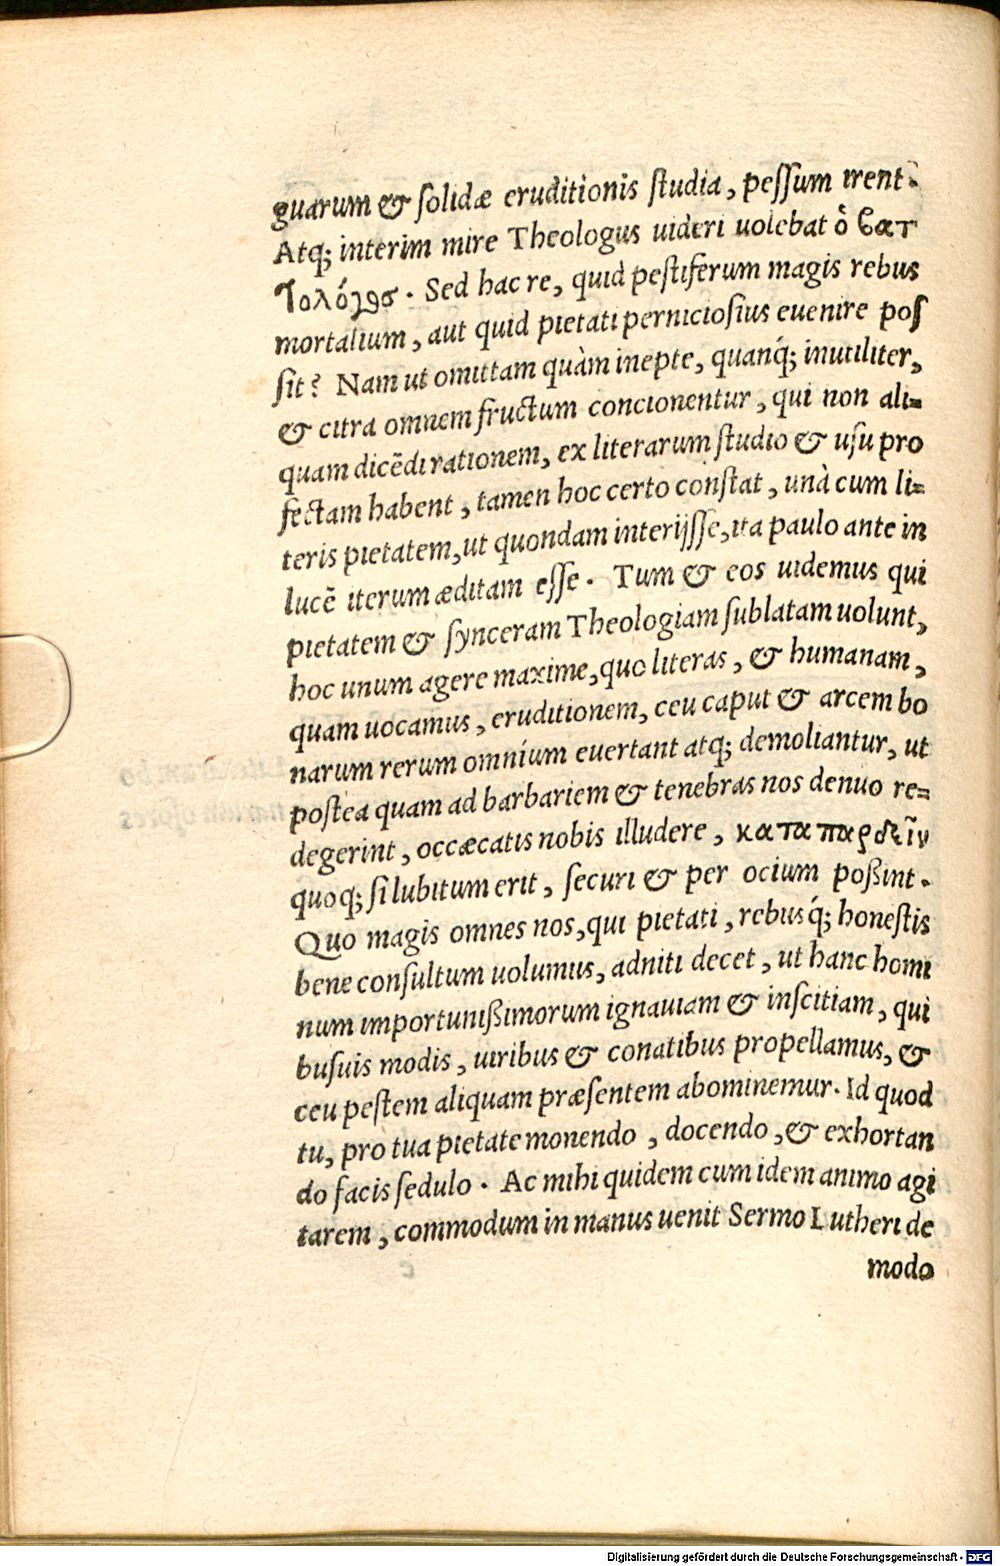 guarum & solidæ eruditionis studia, pessum irent.
Atq; interim mire Theologus uideri uolebat ὁ βατ
τολόγος. Sed hac re, quid pestiferum magis rebus
mortalium, aut quid pietati perniciosius euenire pos
sit? Nam ut omittam quàm inepte, quanq́; inutiliter,
& citra omnem fructum concionentur, qui non ali=
quam dicẽdi rationem, ex literarum studio & usu pro
fectam habent, tamen hoc certo constat, unà cum li=
teris pietatem, ut quondam interijsse, ita paulo ante in
lucẽ iterum æditam esse. Tum & eos uidemus qui
pietatem & synceram Theologiam sublatam uolunt,
hoc unum agere maxime, quo literas, & humanam,
quam uocamus, eruditionem, ceu caput & arcem bo
narum rerum omnium euertant atq; demoliantur, ut
postea quam ad barbariem & tenebras nos denuo re=
degerint, occæcatis nobis illudere, καταπαρδεῖν
quoq; si lubitum erit, securi & per ocium poßint.
Quo magis omnes nos, qui pietati, rebusq́; honestis
bene consultum uolumus, adniti decet, ut hanc homi
num importunißimorum ignauiam & inscitiam, qui
busuis modis, uiribus & conatibus propellamus, &
ceu pestem aliquam præsentem abominemur. Id quod
tu, pro tua pietate monendo, docendo, & exhortan
do facis sedulo. Ac mihi quidem cum idem animo agi
tarem, commodum in manus uenit Sermo Lutheri de
modo
Digitalisierung gefördert durch die Deutsche Forschungsgemeinschaft - DFG